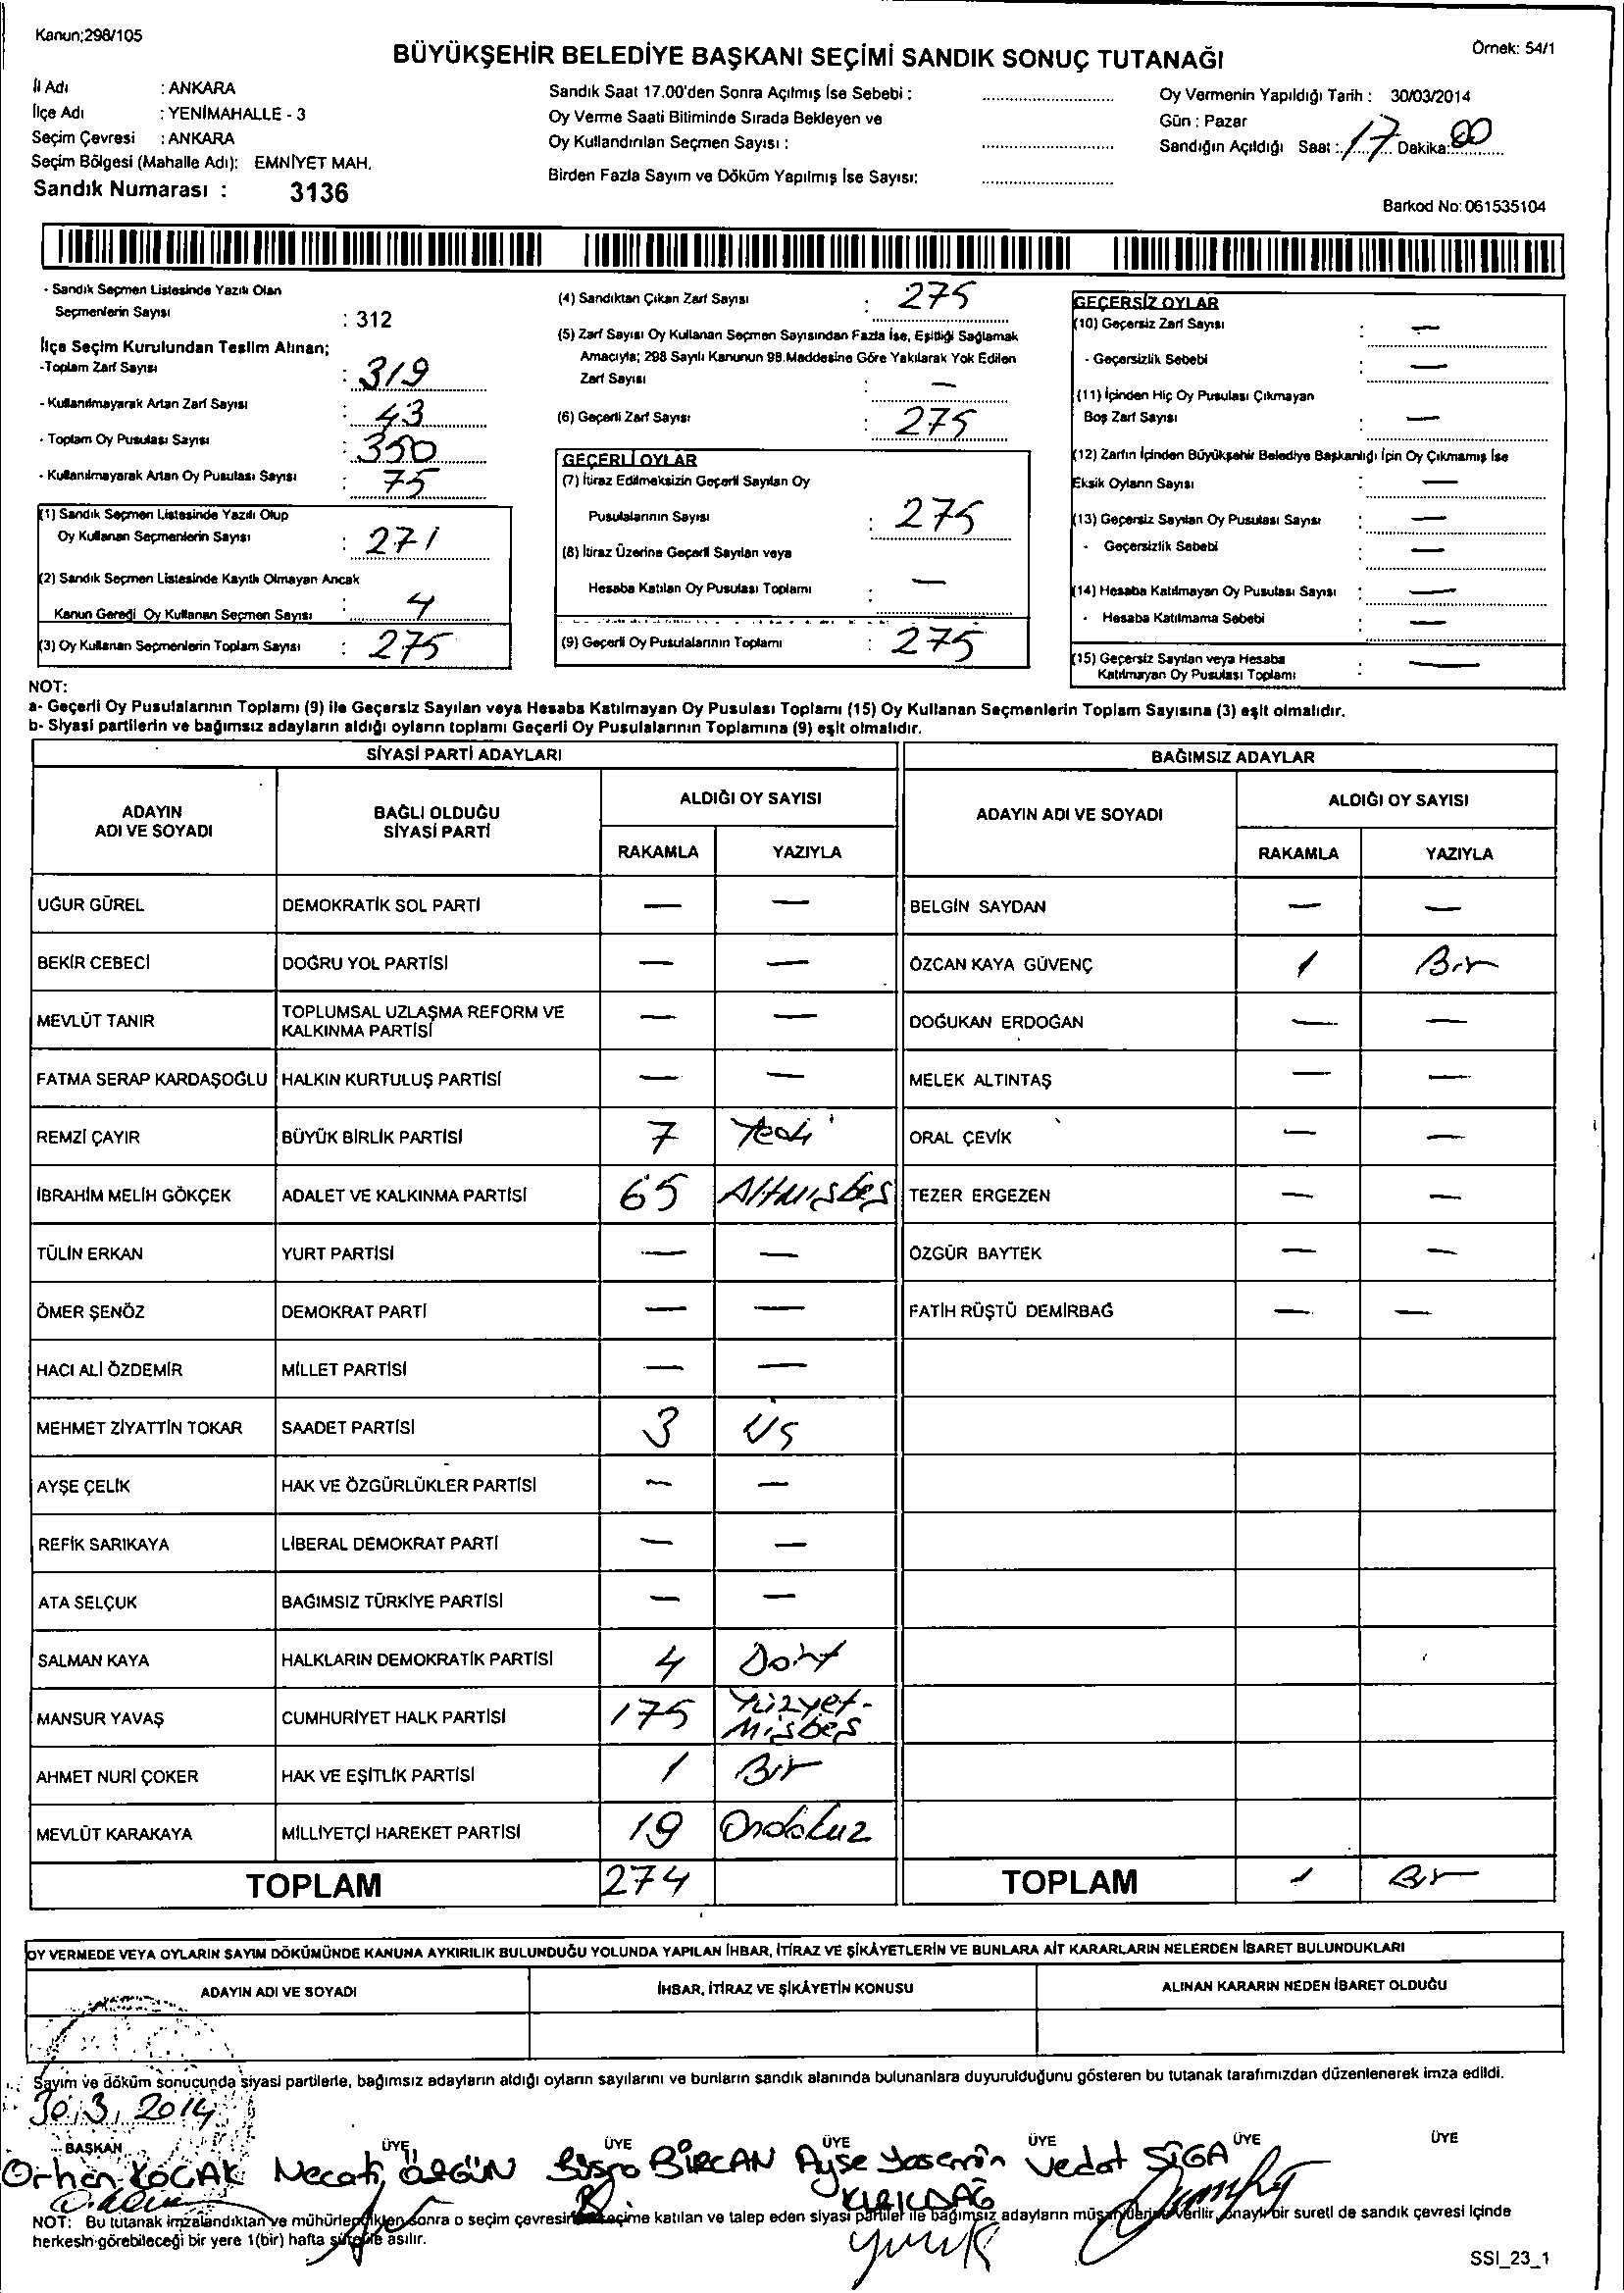 Kanun;298/105
Örnek: 54/1
BÜYÜKŞEHİR BELEDİYE BAŞKANI SEÇİMİ SANDIK SONUÇ TUTANAĞI
İl Adı : ANKARA
İlçe Adı : YENİMAHALLE - 3
Seçim Çevresi : ANKARA
Seçim Bölgesi (Mahalle Adı): EMNİYET MAH.
Sandık Numarası : 3136
Sandık Saat 17.00'den Sonra Açılmış İse Sebebi :
Oy Verme Saati Bitiminde Sırada Bekleyen ve
Oy Kullandırılan Seçmen Sayısı :
Birden Fazla Sayım ve Döküm Yapılmış İse Sayısı:
Oy Vermenin Yapıldığı Tarih : 30/03/2014
Gün : Pazar
Sandığın Açıldığı Saat : 17 Dakika: 00
Barkod No: 061535104
- Sandık Seçmen Listesinde Yazılı Olan
Seçmenlerin Sayısı : 312
İlçe Seçim Kurulundan Teslim Alınan;
-Toplam Zarf Sayısı : 319
- Kullanılmayarak Artan Zarf Sayısı : 43
- Toplam Oy Pusulası Sayısı : 350
- Kullanılmayarak Artan Oy Pusulası Sayısı : 75
(1) Sandık Seçmen Listesinde Yazılı Olup
Oy Kullanan Seçmenlerin Sayısı : 271
(2) Sandık Seçmen Listesinde Kayıtlı Olmayan Ancak
Kanun Gereği Oy Kullanan Seçmen Sayısı : 4
(3) Oy Kullanan Seçmenlerin Toplam Sayısı : 275
(4) Sandıktan Çıkan Zarf Sayısı : 275
(5) Zarf Sayısı Oy Kullanan Seçmen Sayısından Fazla İse, Eşitliği Sağlamak
Amacıyla; 298 Sayılı Kanunun 98.Maddesine Göre Yakılarak Yok Edilen
Zarf Sayısı : —
(6) Geçerli Zarf Sayısı : 275
GEÇERLİ OYLAR
(7) İtiraz Edilmeksizin Geçerli Sayılan Oy
Pusulalarının Sayısı : 275
(8) İtiraz Üzerine Geçerli Sayılan veya
Hesaba Katılan Oy Pusulası Toplamı : —
(9) Geçerli Oy Pusulalarının Toplamı : 275
GEÇERSİZ OYLAR
(10) Geçersiz Zarf Sayısı : —
- Geçersizlik Sebebi : —
(11) İçinden Hiç Oy Pusulası Çıkmayan
Boş Zarf Sayısı : —
(12) Zarfın İçinden Büyükşehir Belediye Başkanlığı İçin Oy Çıkmamış İse
Eksik Oyların Sayısı : —
(13) Geçersiz Sayılan Oy Pusulası Sayısı : —
- Geçersizlik Sebebi : —
(14) Hesaba Katılmayan Oy Pusulası Sayısı : —
- Hesaba Katılmama Sebebi : —
(15) Geçersiz Sayılan veya Hesaba
Katılmayan Oy Pusulası Toplamı : —
NOT:
a- Geçerli Oy Pusulalarının Toplamı (9) ile Geçersiz Sayılan veya Hesaba Katılmayan Oy Pusulası Toplamı (15) Oy Kullanan Seçmenlerin Toplam Sayısına (3) eşit olmalıdır.
b- Siyasi partilerin ve bağımsız adayların aldığı oyların toplamı Geçerli Oy Pusulalarının Toplamına (9) eşit olmalıdır.
SİYASİ PARTİ ADAYLARI BAĞIMSIZ ADAYLAR
ADAYIN ADI VE SOYADI BAĞLI OLDUĞU SİYASİ PARTİ ALDIĞI OY SAYISI ADAYIN ADI VE SOYADI ALDIĞI OY SAYISI
RAKAMLA YAZIYLA RAKAMLA YAZIYLA
UĞUR GÜREL DEMOKRATİK SOL PARTİ — — BELGİN SAYDAN — —
BEKİR CEBECİ DOĞRU YOL PARTİSİ — — ÖZCAN KAYA GÜVENÇ 1 Bir
MEVLÜT TANIR TOPLUMSAL UZLAŞMA REFORM VE KALKINMA PARTİSİ — — DOĞUKAN ERDOĞAN — —
FATMA SERAP KARDAŞOĞLU HALKIN KURTULUŞ PARTİSİ — — MELEK ALTINTAŞ — —
REMZİ ÇAYIR BÜYÜK BİRLİK PARTİSİ 7 Yedi ORAL ÇEVİK — —
İBRAHİM MELİH GÖKÇEK ADALET VE KALKINMA PARTİSİ 65 Altmışbeş TEZER ERGEZEN — —
TÜLİN ERKAN YURT PARTİSİ — — ÖZGÜR BAYTEK — —
ÖMER ŞENÖZ DEMOKRAT PARTİ — — FATİH RÜŞTÜ DEMİRBAĞ — —
HACI ALİ ÖZDEMİR MİLLET PARTİSİ — —
MEHMET ZİYATTİN TOKAR SAADET PARTİSİ 3 Üç
AYŞE ÇELİK HAK VE ÖZGÜRLÜKLER PARTİSİ — —
REFİK SARIKAYA LİBERAL DEMOKRAT PARTİ — —
ATA SELÇUK BAĞIMSIZ TÜRKİYE PARTİSİ — —
SALMAN KAYA HALKLARIN DEMOKRATİK PARTİSİ 4 Dört
MANSUR YAVAŞ CUMHURİYET HALK PARTİSİ 175 Yüzyet-mişbeş
AHMET NURİ ÇOKER HAK VE EŞİTLİK PARTİSİ 1 Bir
MEVLÜT KARAKAYA MİLLİYETÇİ HAREKET PARTİSİ 19 Ondokuz
TOPLAM 274 TOPLAM 1 Bir
OY VERMEDE VEYA OYLARIN SAYIM DÖKÜMÜNDE KANUNA AYKIRILIK BULUNDUĞU YOLUNDA YAPILAN İHBAR, İTİRAZ VE ŞİKÂYETLERİN VE BUNLARA AİT KARARLARIN NELERDEN İBARET BULUNDUKLARI
ADAYIN ADI VE SOYADI İHBAR, İTİRAZ VE ŞİKÂYETİN KONUSU ALINAN KARARIN NEDEN İBARET OLDUĞU
Sayım ve döküm sonucunda siyasi partilerle, bağımsız adayların aldığı oyların sayılarını ve bunların sandık alanında bulunanlara duyurulduğunu gösteren bu tutanak tarafımızdan düzenlenerek imza edildi.
30/3/2014
BAŞKAN ÜYE ÜYE ÜYE ÜYE ÜYE ÜYE
Orhan KOÇAK Necati ÖZGÜN Büşra BİRCAN Ayşe Yasemin Vedat SIGA
KIRIKDAĞ
NOT: Bu tutanak imzalandıktan ve mühürlendikten sonra o seçim çevresinde seçime katılan ve talep eden siyasi partiler ile bağımsız adayların müşahitlerine verilir, onaylı bir sureti de sandık çevresi içinde
herkesin görebileceği bir yere 1(bir) hafta süreyle asılır.
SSI_23_1